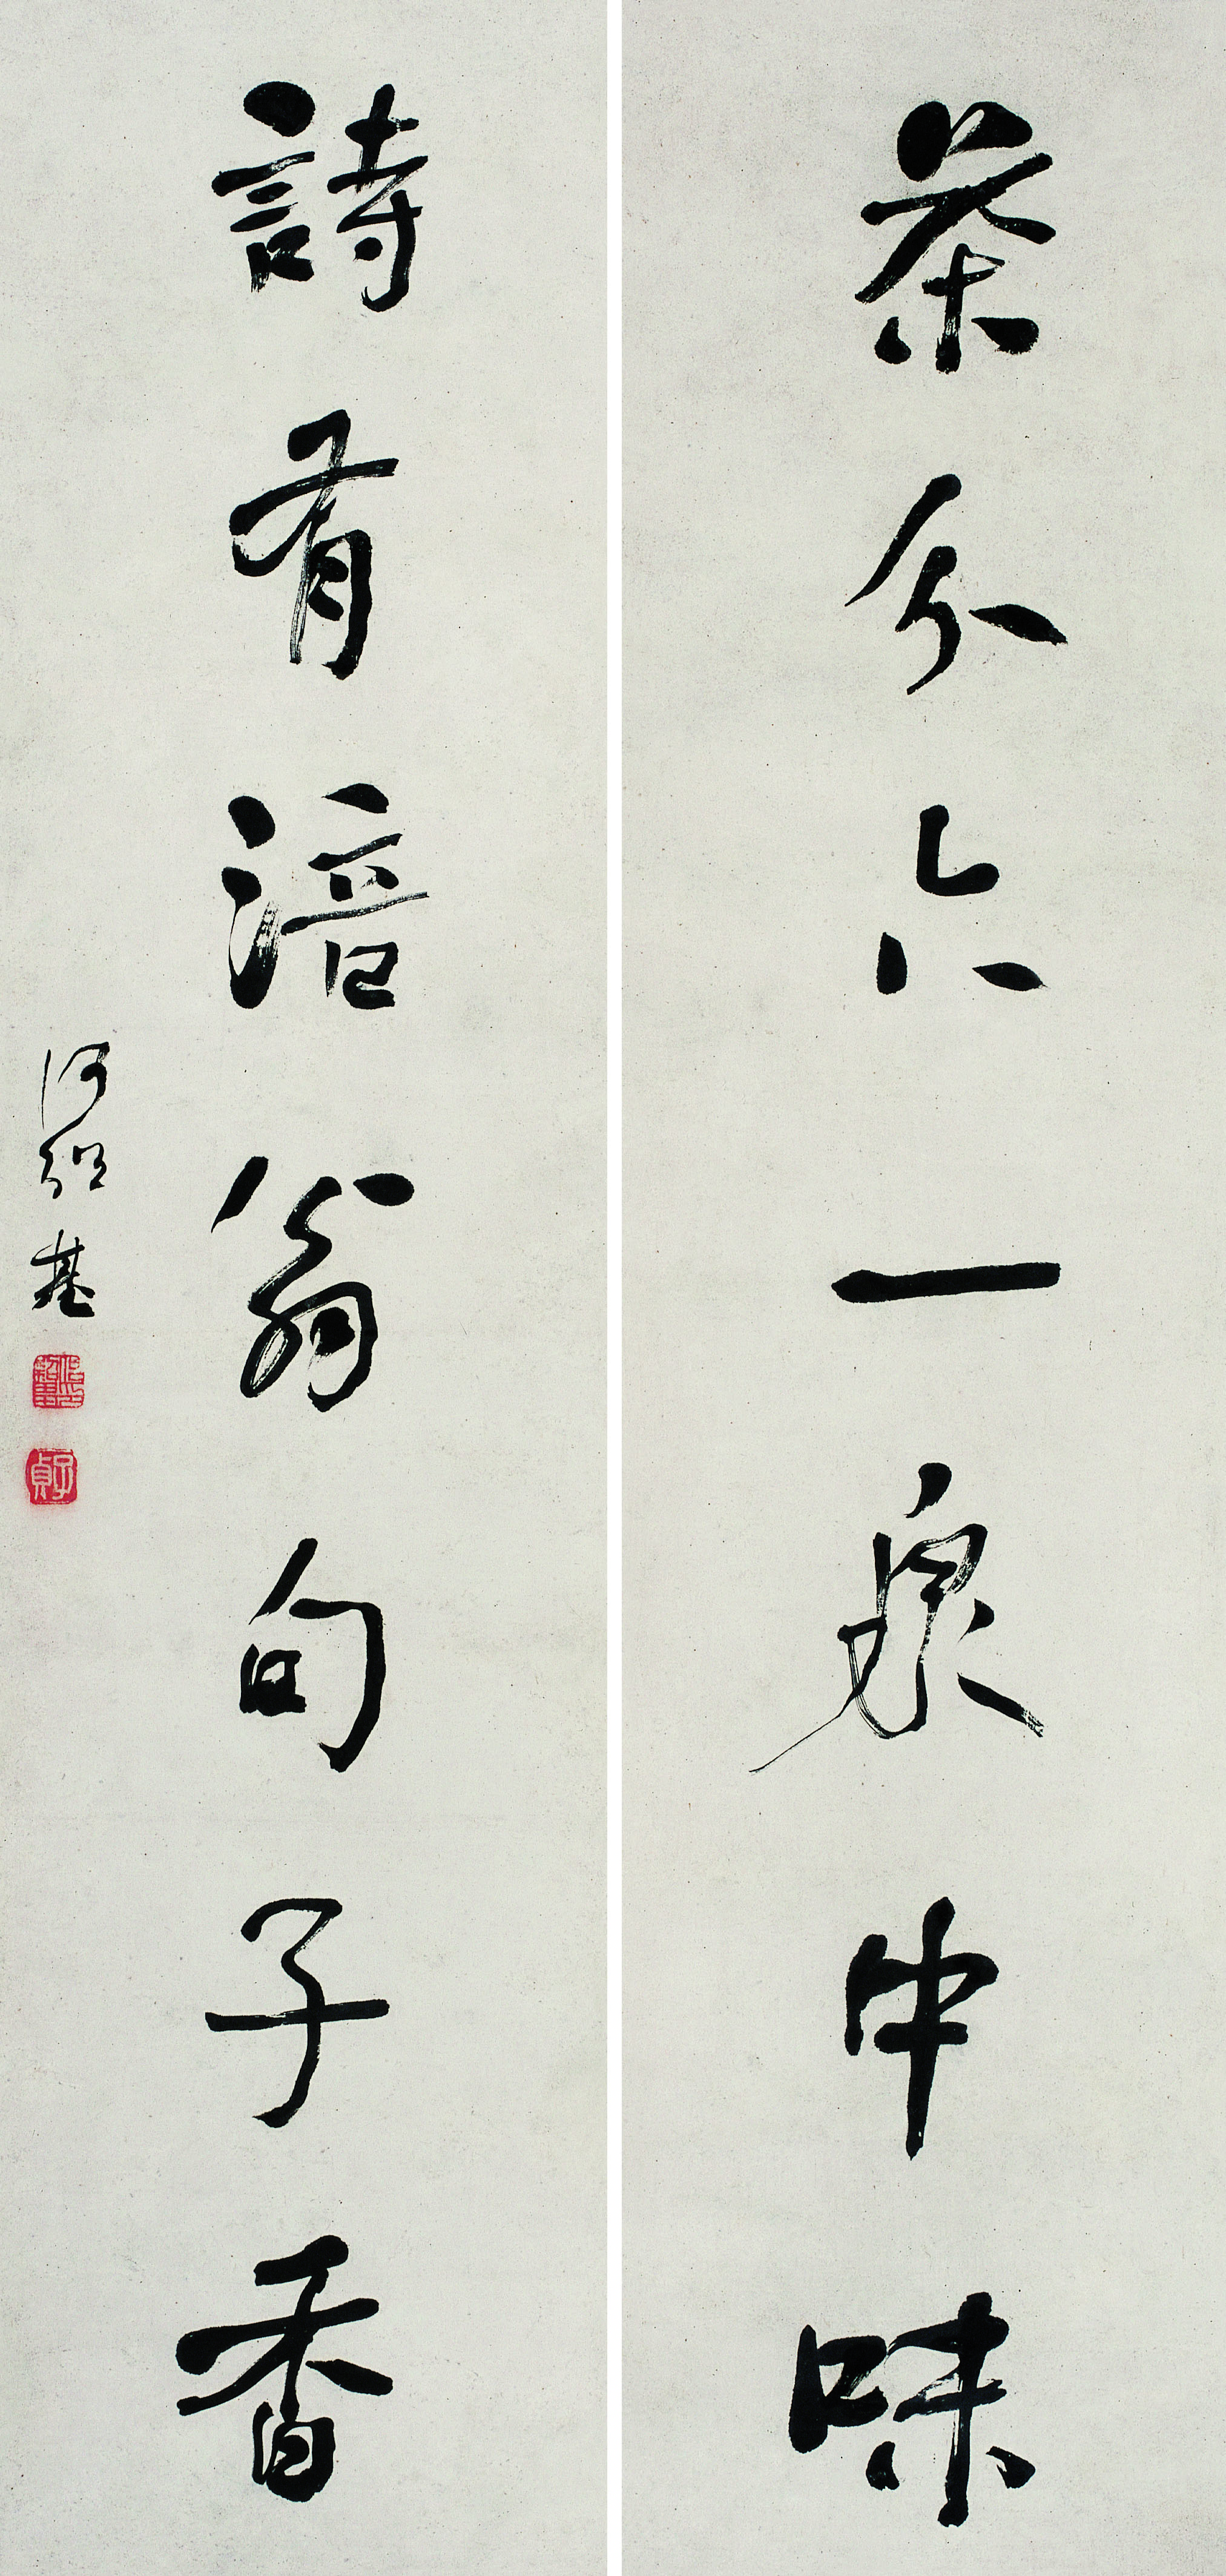 茶分六一泉中味
詩有涪翁句子香
何紹基
子貞